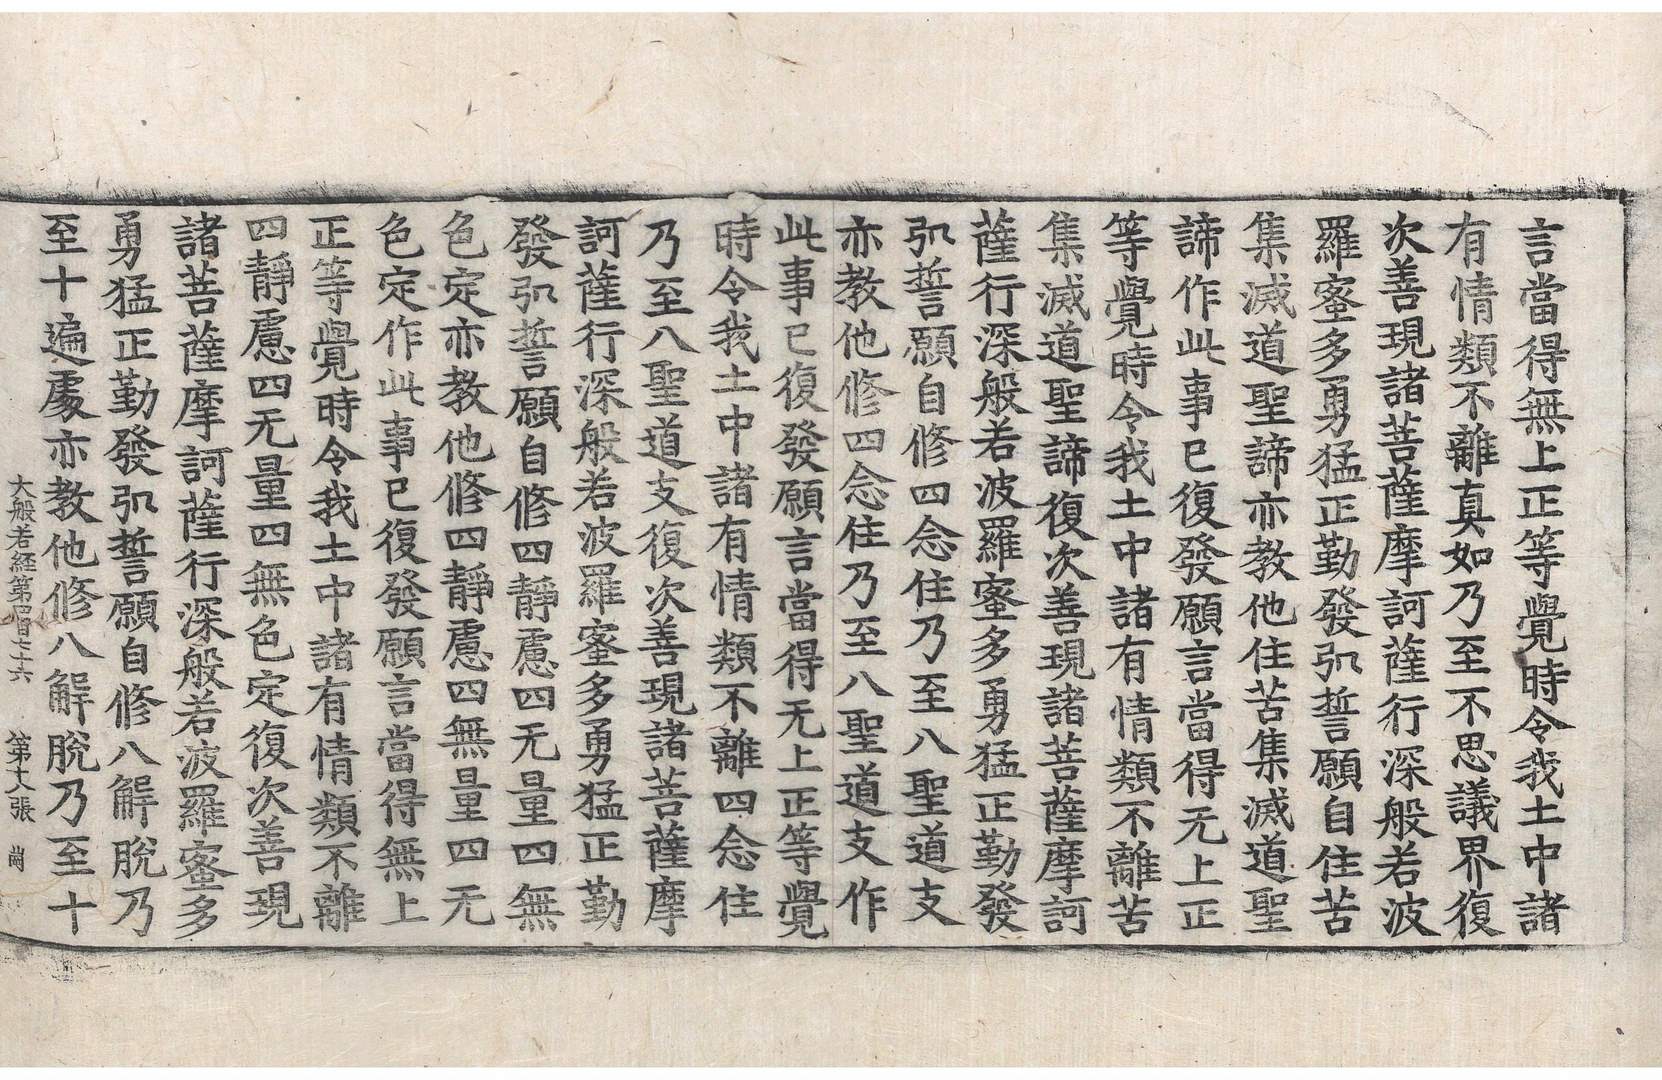 言當得無上正等覺時令我土中諸
有情類不離真如乃至不思議界復
次善現諸菩薩摩訶薩行深般若波
羅蜜多勇猛正勤發弘誓願自住苦
集滅道聖諦亦教他住苦集滅道聖
諦作此事已復發願言當得无上正
等覺時令我土中諸有情類不離苦
集滅道聖諦復次善現諸菩薩摩訶
薩行深般若波羅蜜多勇猛正勤發
弘誓願自修四念住乃至八聖道支
亦教他修四念住乃至八聖道支作
此事已復發願言當得无上正等覺
時令我土中諸有情類不離四念住
乃至八聖道支復次善現諸菩薩摩
訶薩行深般若波羅蜜多勇猛正勤
發弘誓願自修四靜慮四无量四無
色定亦教他修四靜慮四無量四无
色定作此事已復發願言當得無上
正等覺時令我土中諸有情類不離
四靜慮四无量四無色定復次善現
諸菩薩摩訶薩行深般若波羅蜜多
勇猛正勤發弘誓願自修八解脫乃
至十遍處亦教他修八解脫乃至十
大般若經第四百七十六 第十八張